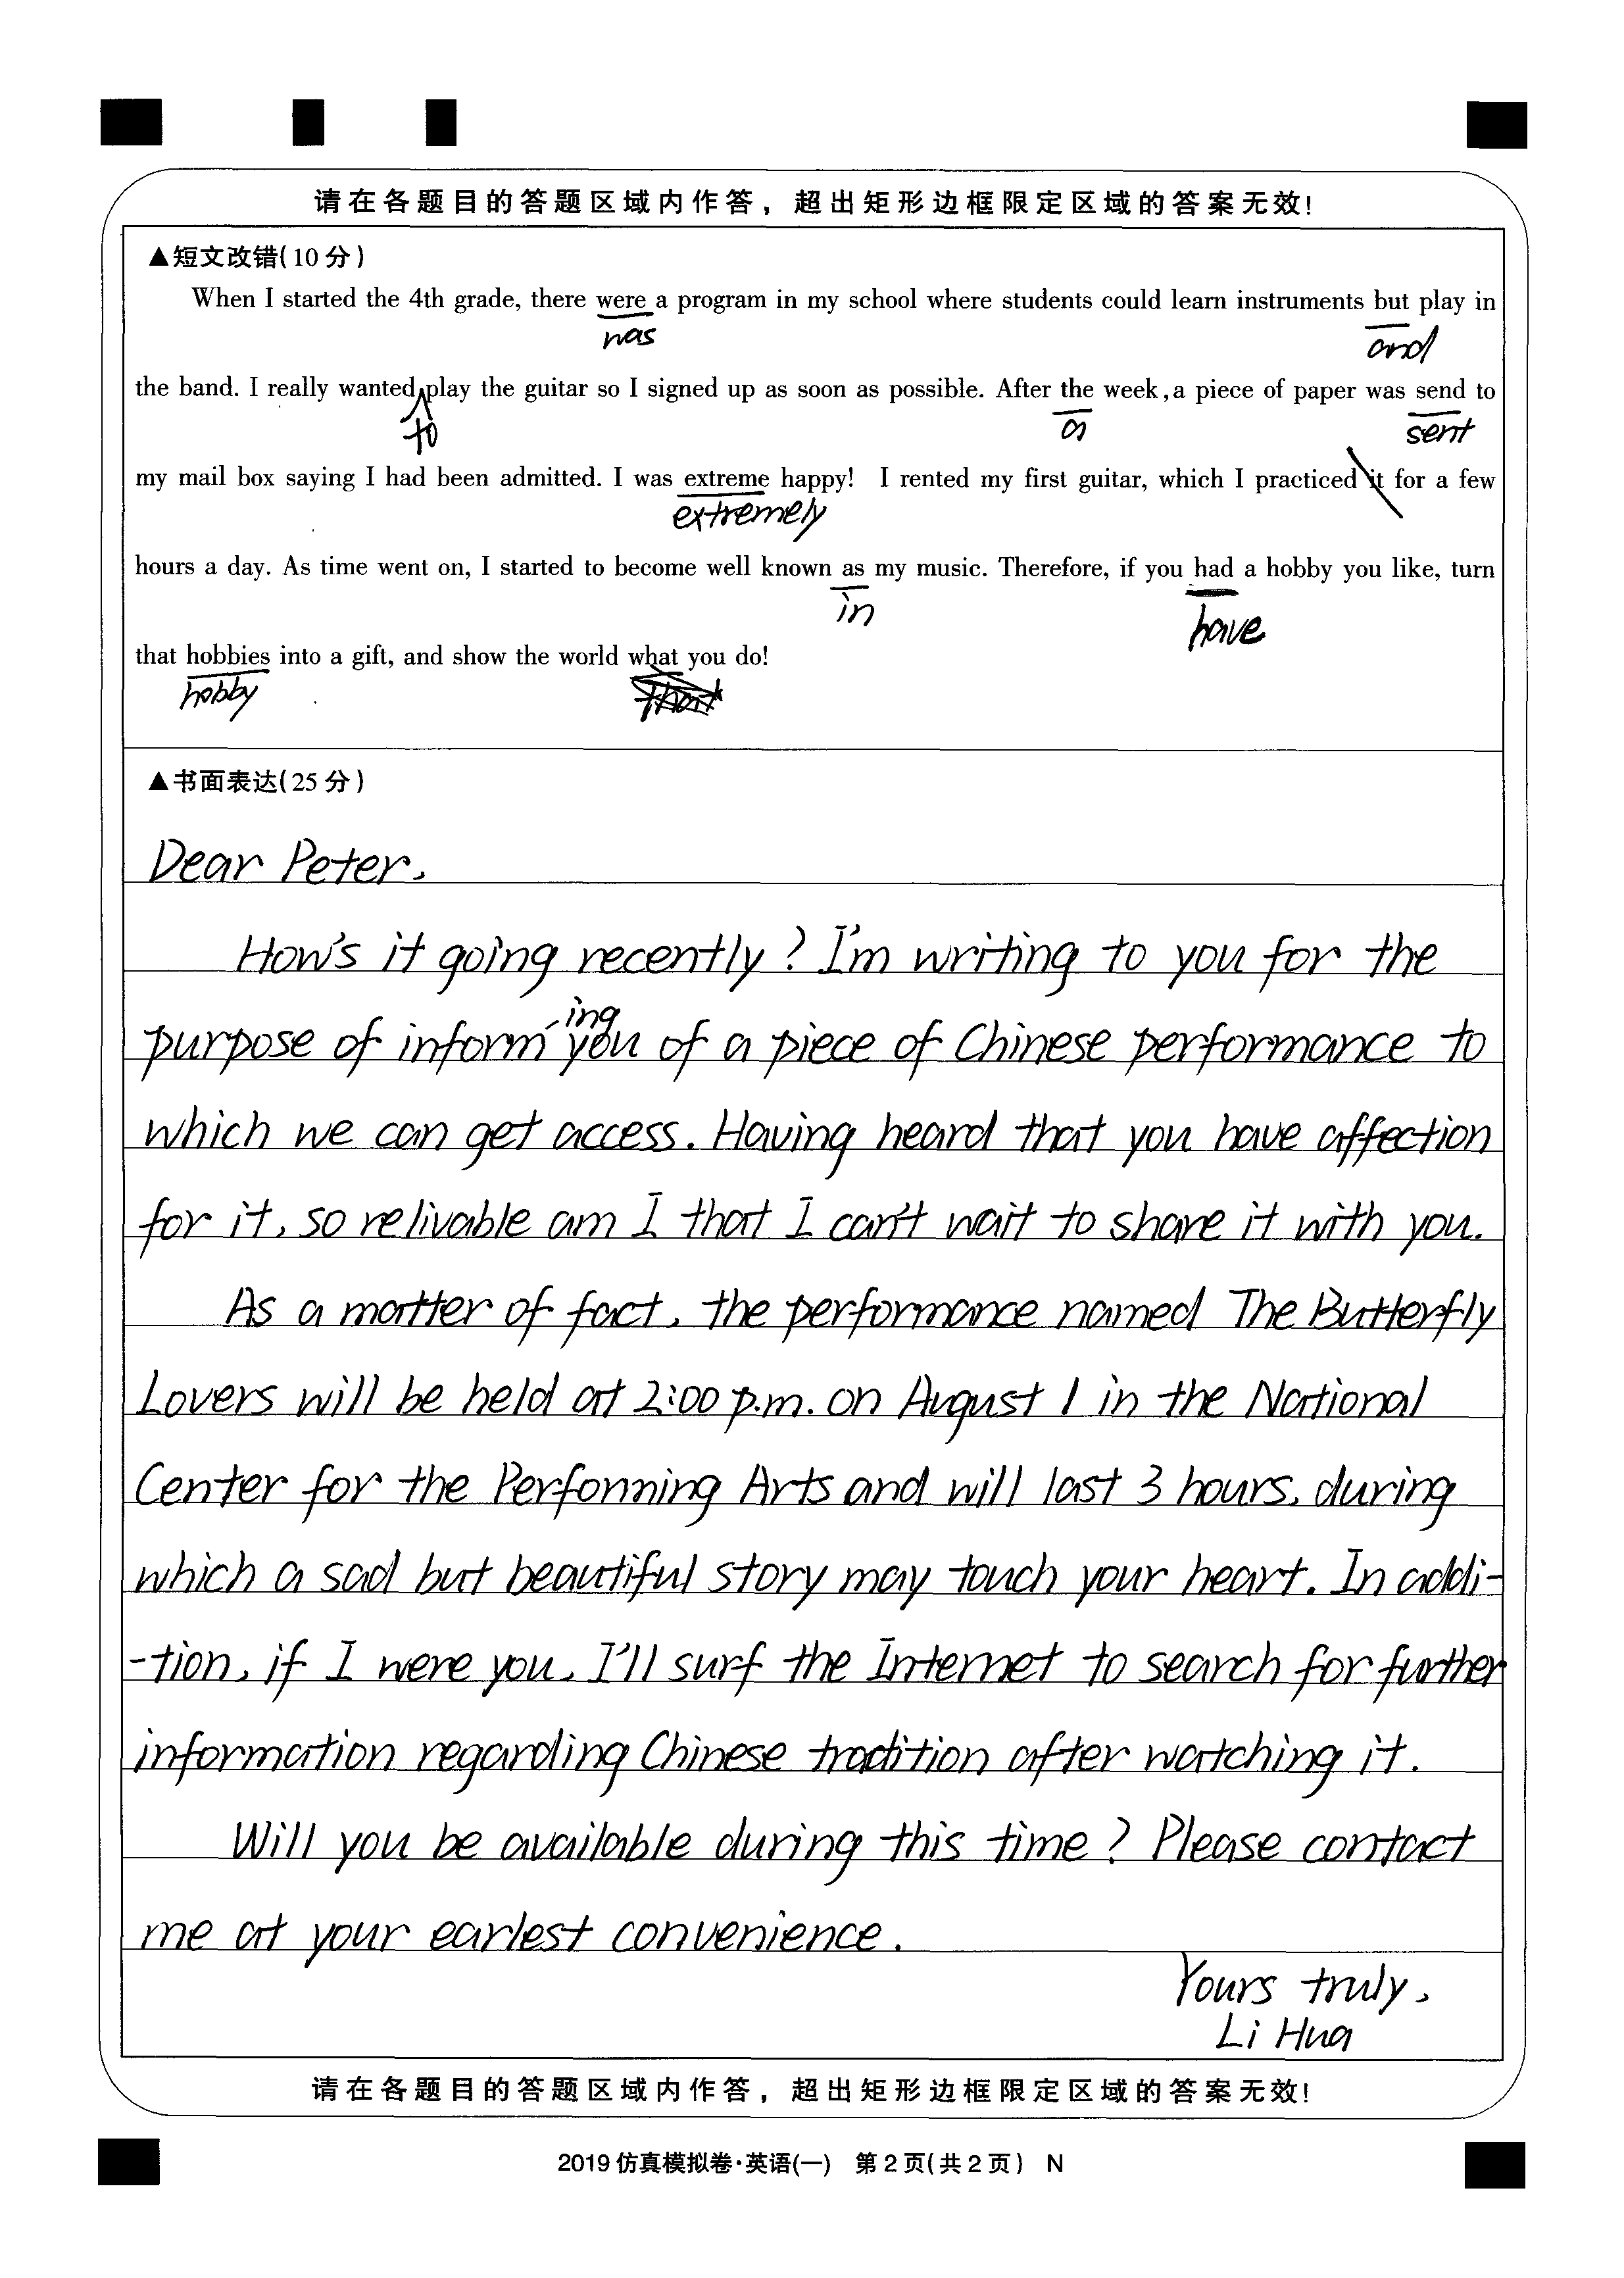 请在各题目的答题区域内作答，超出矩形边框限定区域的答案无效！
▲短文改错(10分)
When I started the 4th grade, there were a program in my school where students could learn instruments but play in
was and
the band. I really wanted play the guitar so I signed up as soon as possible. After the week, a piece of paper was send to
to a sent
my mail box saying I had been admitted. I was extreme happy! I rented my first guitar, which I practiced it for a few
extremely
hours a day. As time went on, I started to become well known as my music. Therefore, if you had a hobby you like, turn
in have
that hobbies into a gift, and show the world what you do!
hobby that
▲书面表达(25分)
Dear Peter,
How's it going recently? I'm writing to you for the
ing
purpose of inform you of a piece of Chinese performance to
which we can get access. Having heard that you have affection
for it, so relivable am I that I can't wait to share it with you.
As a matter of fact, the performance named The Butterfly
Lovers will be held at 2:00 p.m. on August 1 in the National
Center for the Performing Arts and will last 3 hours, during
which a sad but beautiful story may touch your heart. In addi-
-tion, if I were you, I'll surf the Internet to search for further
information regarding Chinese tradition after watching it.
Will you be available during this time? Please contact
me at your earlest convenience.
Yours truly,
Li Hua
请在各题目的答题区域内作答，超出矩形边框限定区域的答案无效！
2019仿真模拟卷·英语(一) 第2页(共2页) N